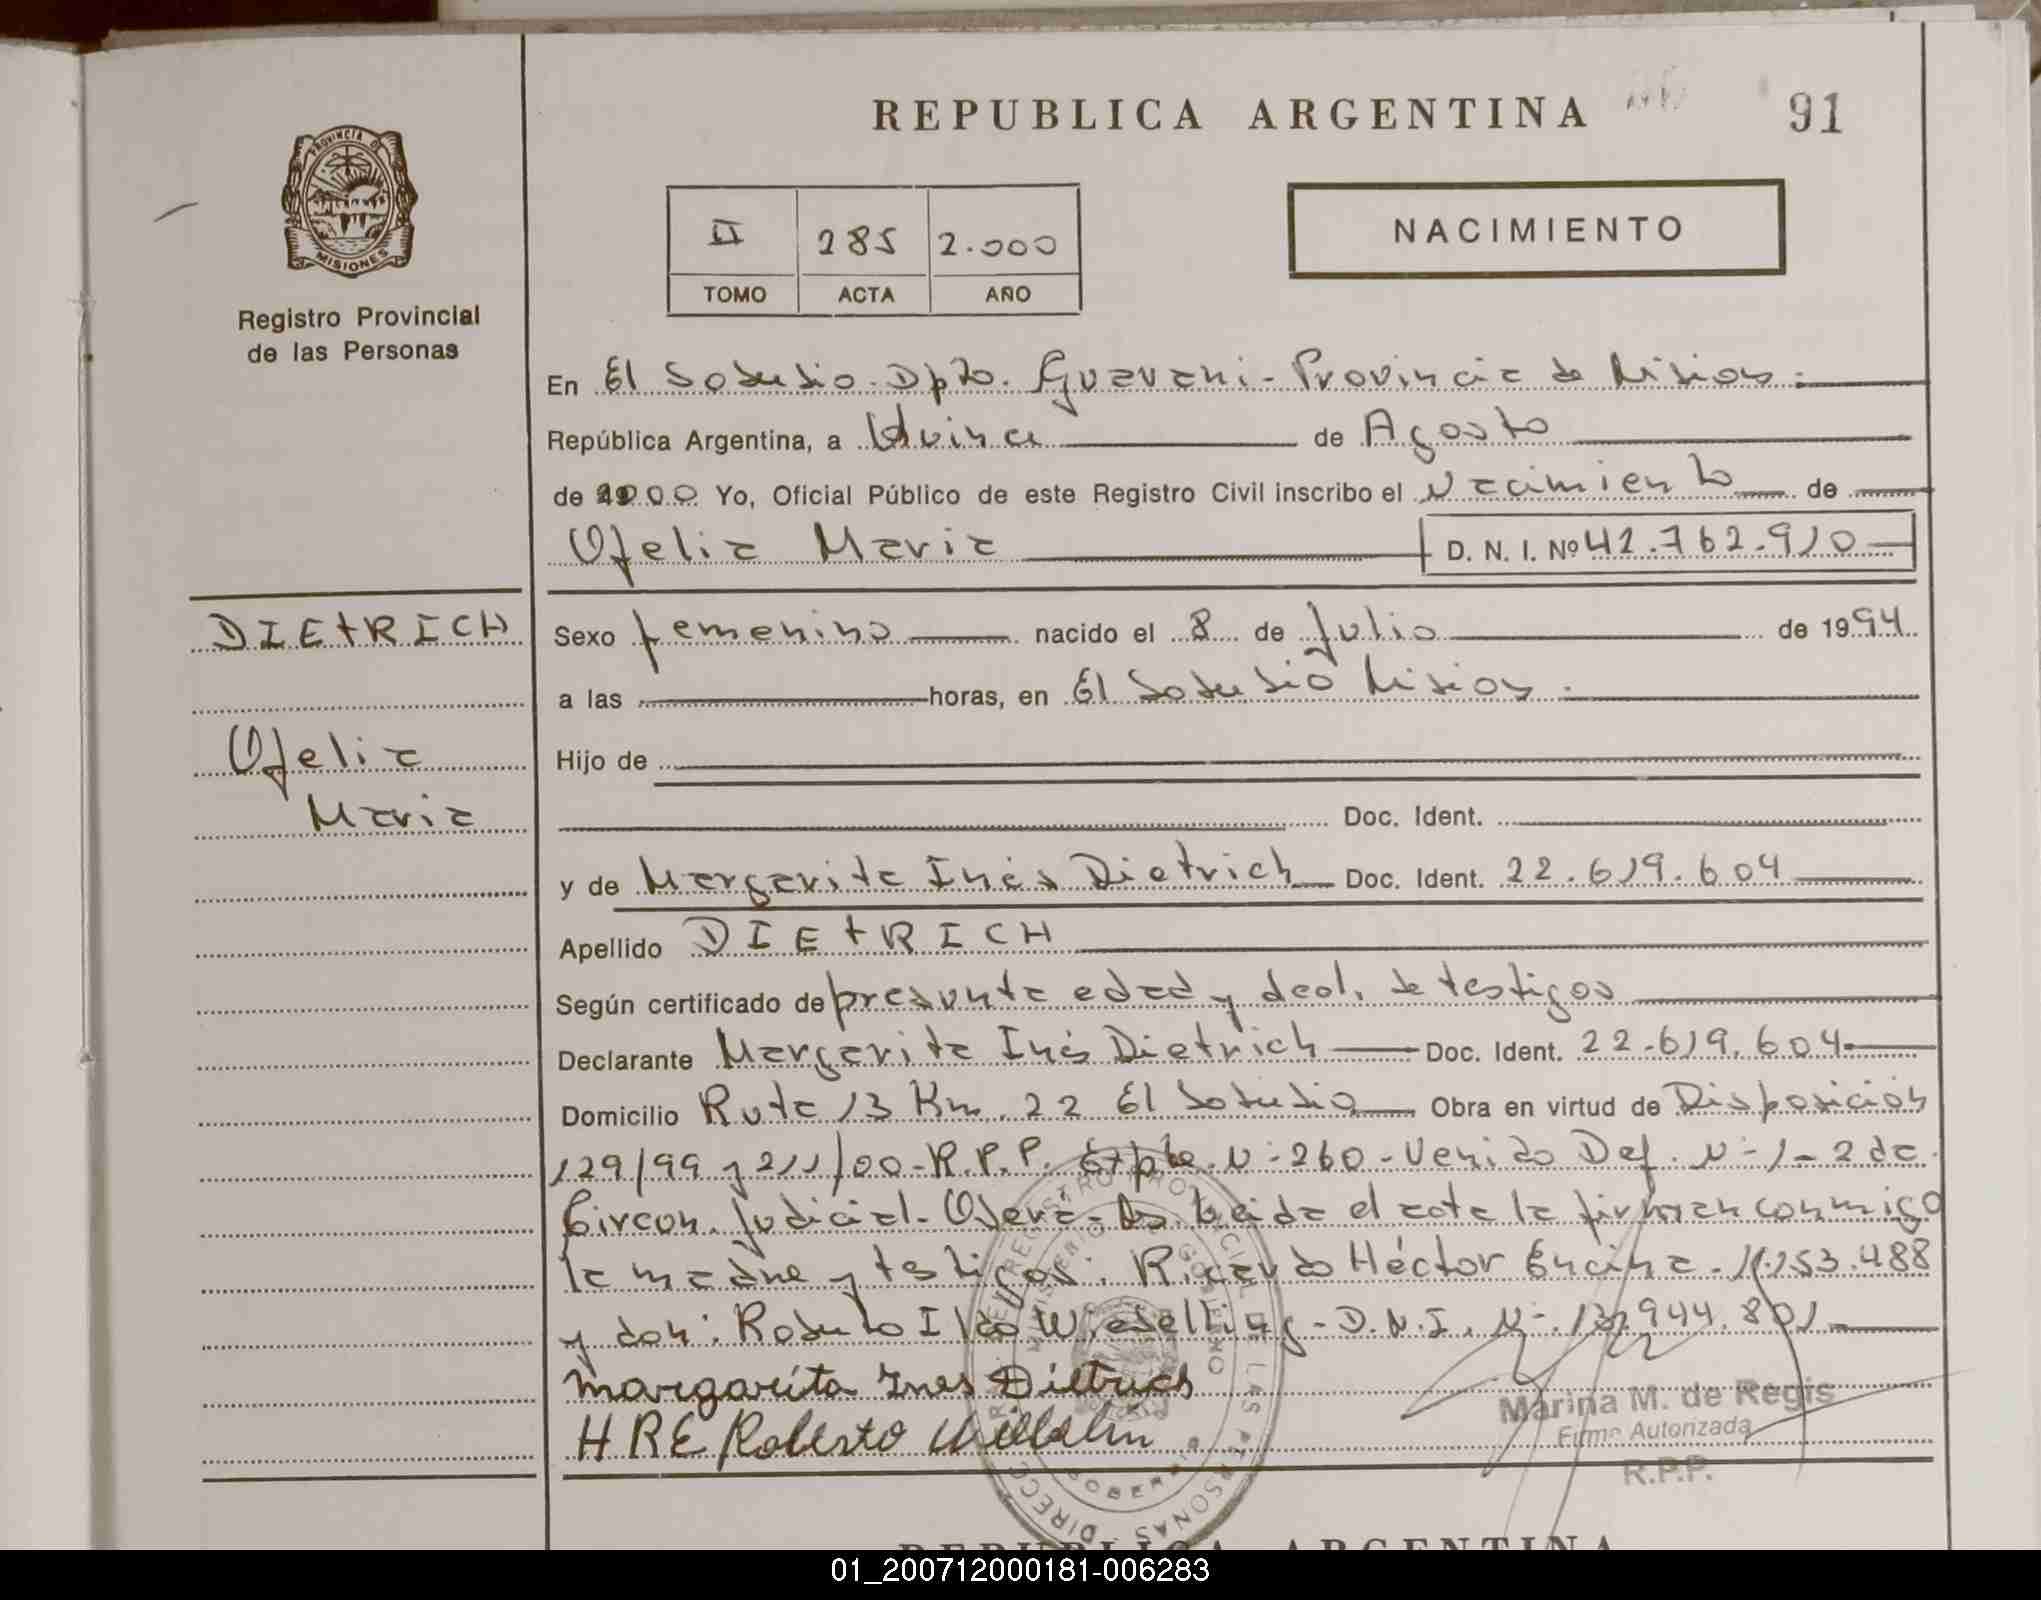 REPUBLICA ARGENTINA
91
PROVINCIA DE
MISIONES
Registro Provincial
de las Personas
II 285 2.000
TOMO ACTA AÑO
NACIMIENTO
En El Soberbio - Dpto. Guarani - Provincia de Misiones
República Argentina, a Quince de Agosto
de 2000 Yo, Oficial Público de este Registro Civil inscribo el Nacimiento de
Ofelia Maria D. N. I. Nº 42.762.910
DIETRICH
Ofelia
Maria
Sexo femenino nacido el 8 de Julio de 1994
a las horas, en El Soberbio Misiones
Hijo de
Doc. Ident.
y de Margarita Inés Dietrich Doc. Ident. 22.619.604
Apellido DIETRICH
Según certificado de presunta edad y decl. de testigos
Declarante Margarita Inés Dietrich Doc. Ident. 22.619.604
Domicilio Ruta 13 Km. 22 El Soberbio Obra en virtud de Disposición
129/99 y 211/00 - R.P.P. Expte. Nº 260 - Venido Def. Nº 1 - 2da
Circon. Judicial - Oberá - Leida el acta la firman conmigo
la madre y testigos: Ricardo Héctor Encina - 11.253.488
y don: Roberto Ildo Wieselling - D.N.I. Nº 13.944.801
Margarita Ines Dietrich
H R E Roberto
Marina M. de Regis
Firma Autorizada
R.P.P.
REPUBLICA ARGENTINA
01_200712000181-006283